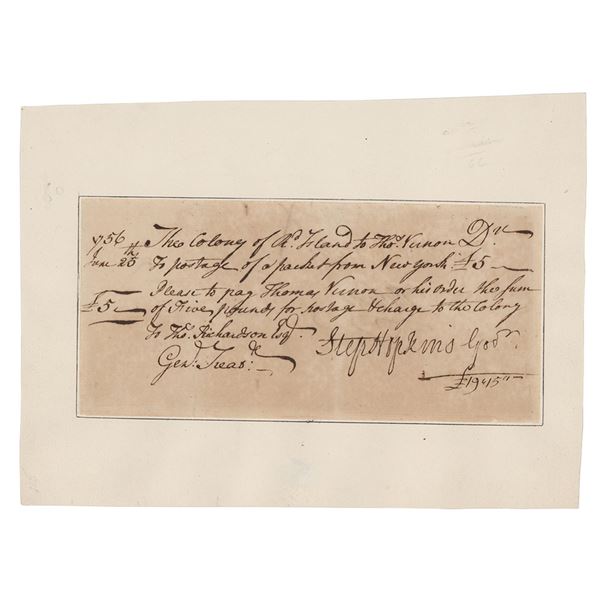 1756 The Colony of Rd. Island to Thos. Vernon Dr.
June 25th To postage of a packet from New York £5
Please to pay Thomas Vernon or his order the sum
£5 of Five pounds for postage & charge to the Colony
To Thos. Richardson Esqr.
Genl. Treasr.
Step Hopkins Govr.
£19"15"